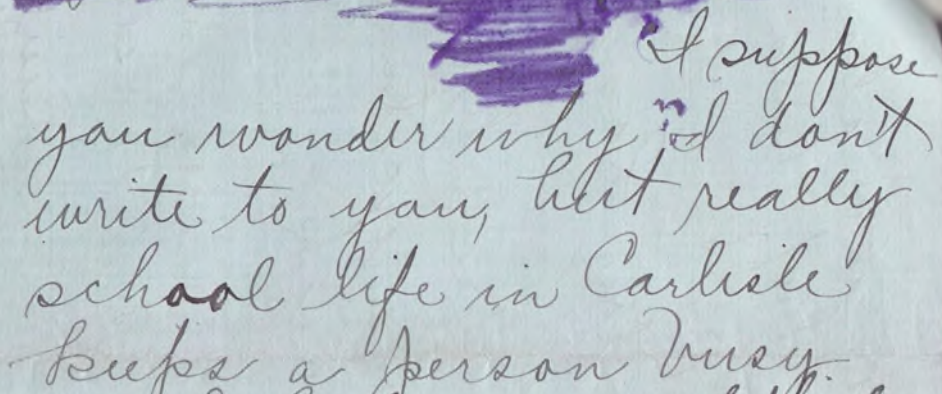 I suppose
you wonder why I don't
write to you, but really
school life in Carlisle
keeps a person busy.